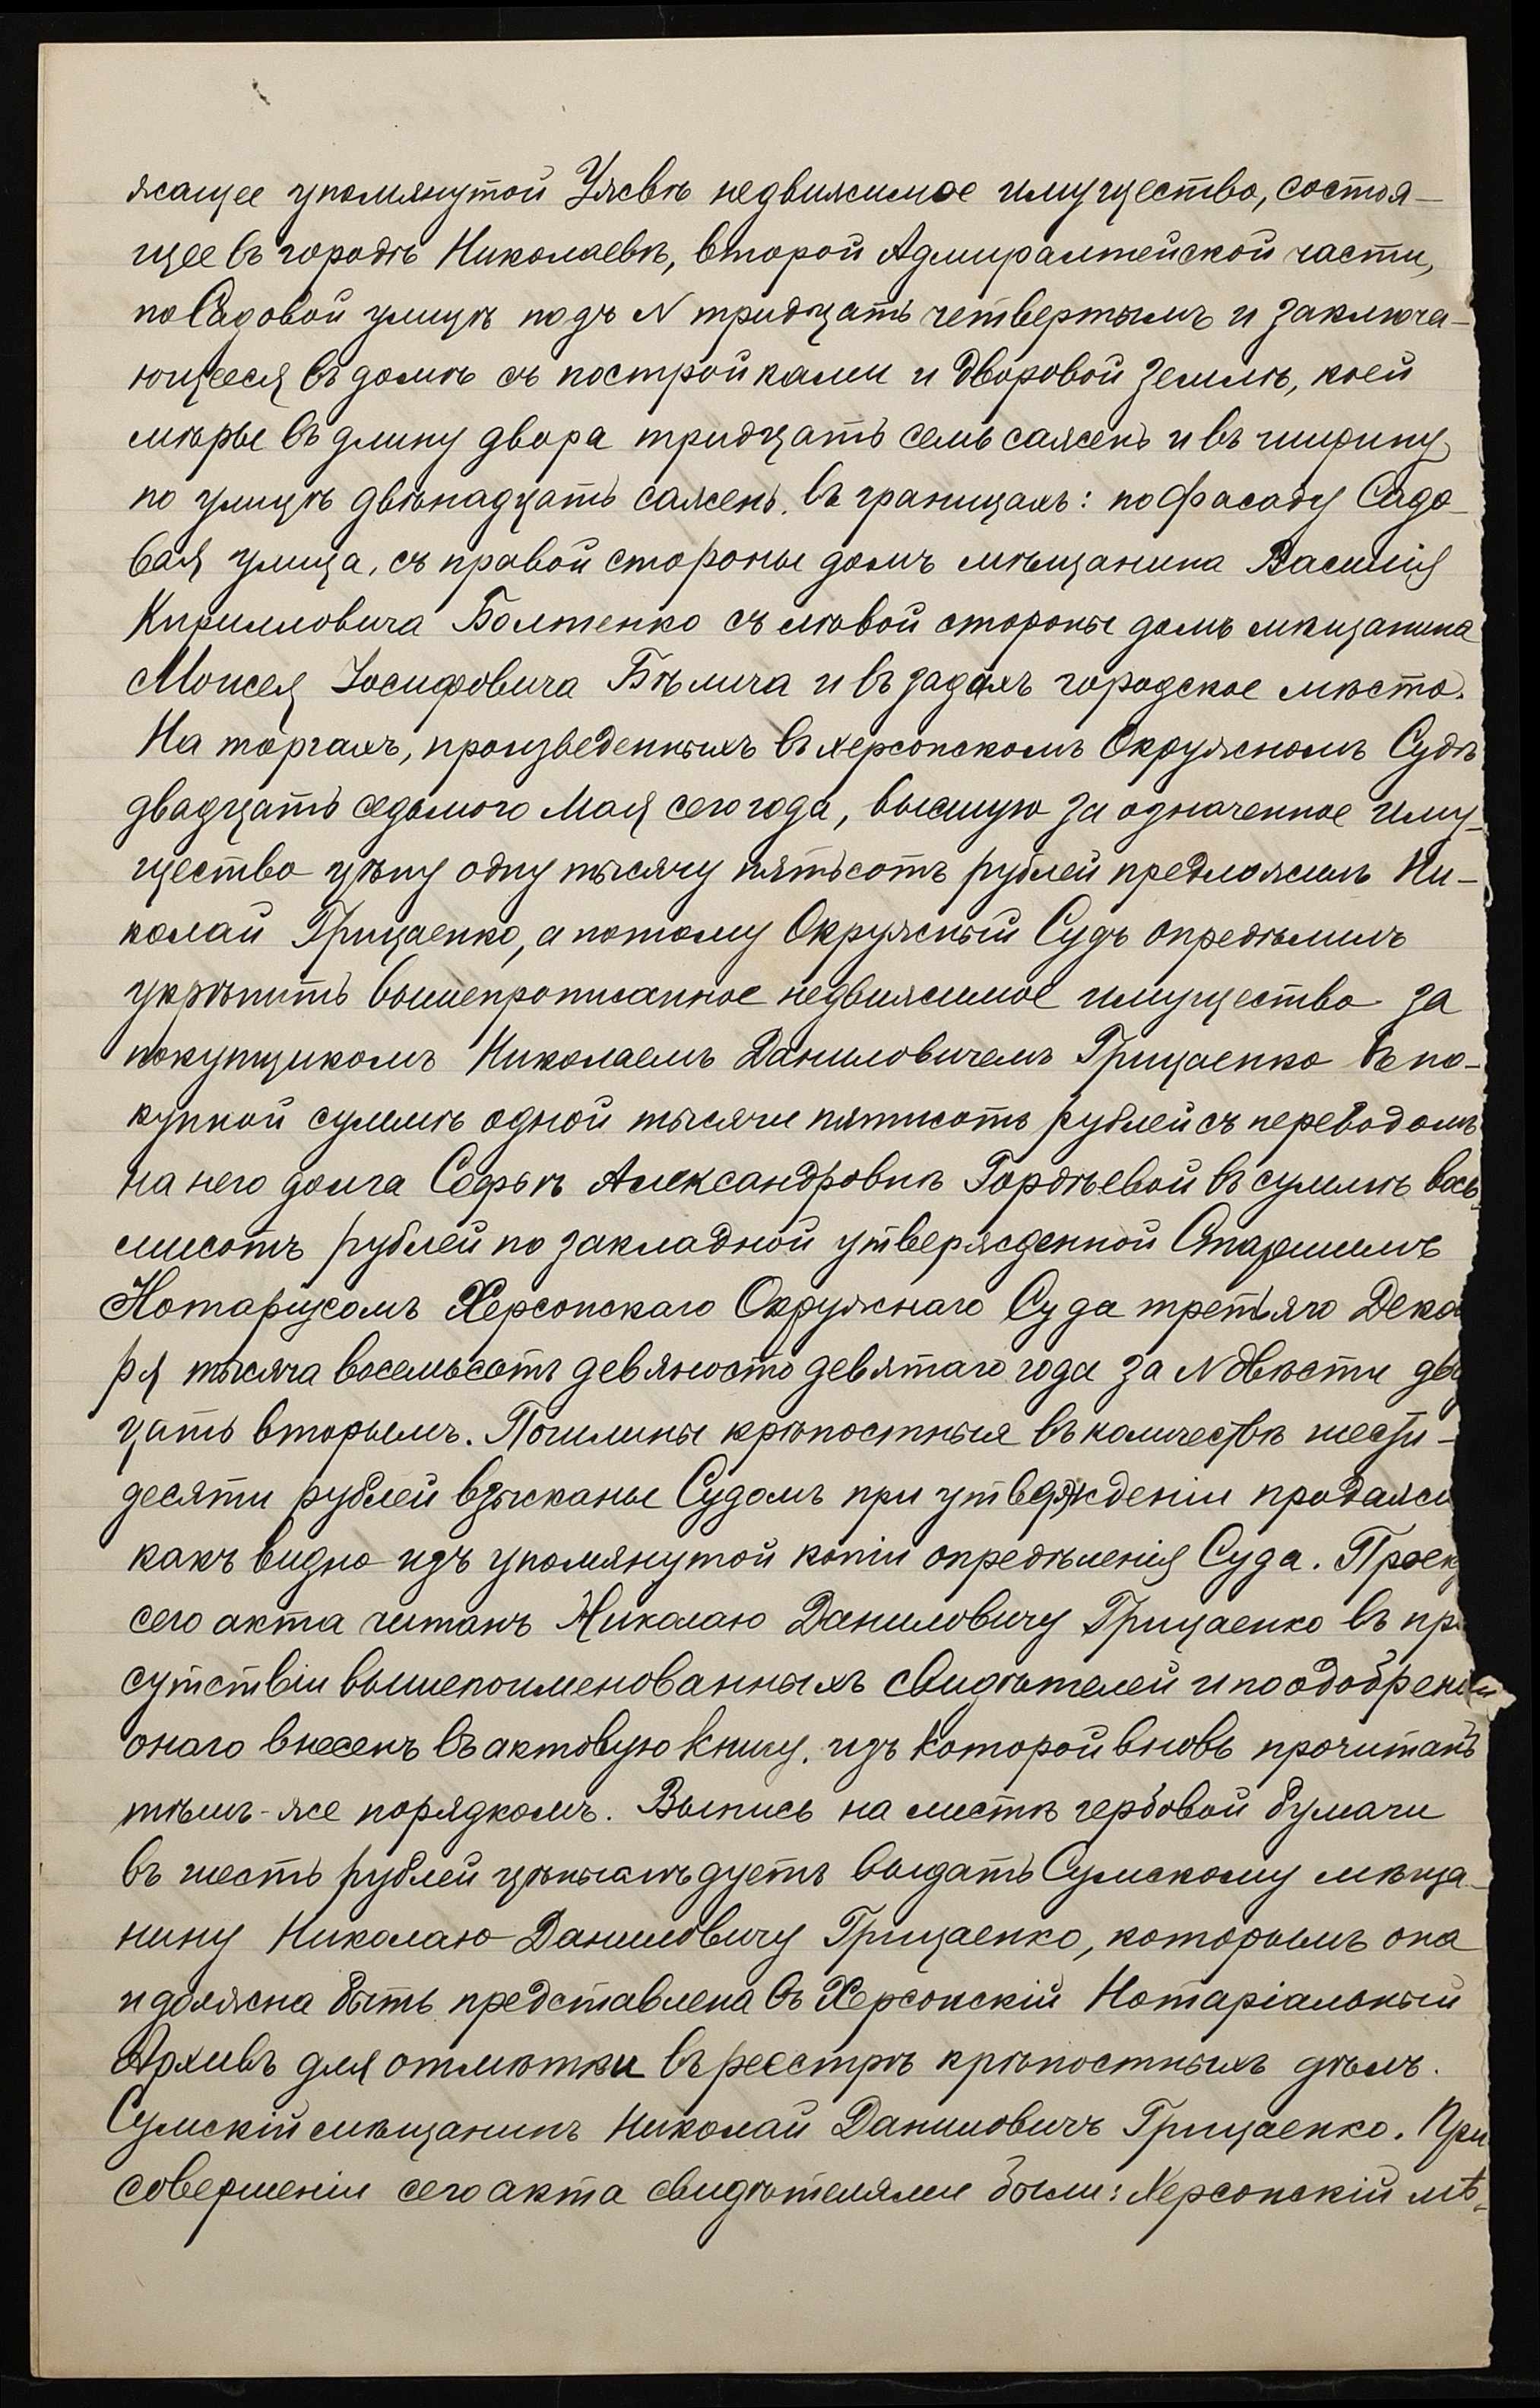 жащее упомянутой Ужвѣ недвижимое имущество, состоя-
щее въ городѣ Николаевѣ, второй Адмиралтейской части,
по Садовой улицѣ подъ N тридцать четвертымъ и заключа-
ющееся въ домѣ съ постройками и дворовой землѣ, коей
мѣры въ длину двора тридцать семь сажень и въ ширину
по улицѣ двѣнадцать сажень. въ границахъ: по фасаду Садо-
вая улица, съ правой стороны домъ мѣщанина Василія
Кирилловича Болтенко съ лѣвой стороны домъ мѣщанина
Моисея Іосифовича Бѣлича и въ задахъ городское мѣсто.
На торгахъ, произведенныхъ въ Херсонскомъ Окружномъ Судѣ
двадцать седьмого Мая сего года, высшую за означенное иму-
щество цѣну одну тысячу пятьсотъ рублей предложилъ Ни-
колай Грицаенко, а потому Окружный Судъ опредѣлилъ
укрѣпить вышепрописанное недвижимое имущество за
покупщикомъ Николаемъ Даниловичемъ Грицаенко въ по-
купной суммѣ одной тысячи пятисотъ рублей съ переводомъ
на него долга Софьѣ Александровнѣ Гордѣевой въ суммѣ вось-
мисотъ рублей по закладной утвержденной Старшимъ
Нотаріусомъ Херсонскаго Окружнаго Суда третьяго Дека
ря тысяча восемьсотъ девяносто девятаго года за N двѣсти два
цать вторымъ. Пошлины крѣпостныя въ количествѣ шести-
десяти рублей взысканы Судомъ при утвержденіи продажи
какъ видно изъ упомянутой копіи опредѣленія Суда. Проек
сего акта читанъ Николаю Даниловичу Грицаенко въ при
сутствіи вышепоименованныхъ свидѣтелей и по одобреніи
онаго внесенъ въ актовую книгу, изъ которой вновь прочитанъ
тѣмъ-же порядкомъ. Выпись на листѣ гербовой бумаги
въ шесть рублей цѣны слѣдуетъ выдать Сумскому мѣща-
нину Николаю Даниловичу Грицаенко, которымъ она
и должна быть представлена въ Херсонскій Нотаріальный
Архивъ для отмѣтки въ реестрѣ крѣпостныхъ дѣлъ.
Сумскій мѣщанинъ Николай Даниловичъ Грицаенко. При
совершеніи сего акта свидѣтелями были: Херсонскій мѣ-